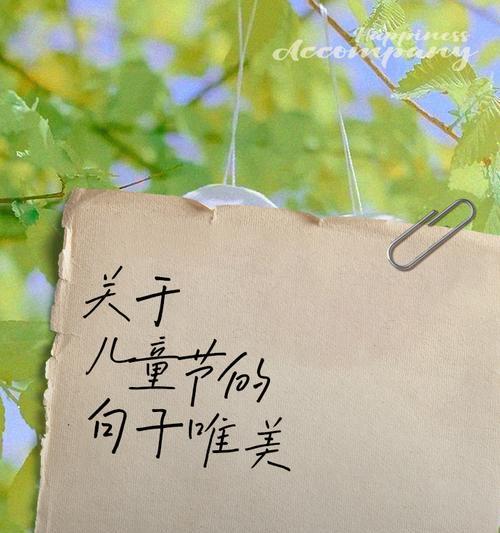 Happiness
Accompany
关于
儿童节的
句子唯美